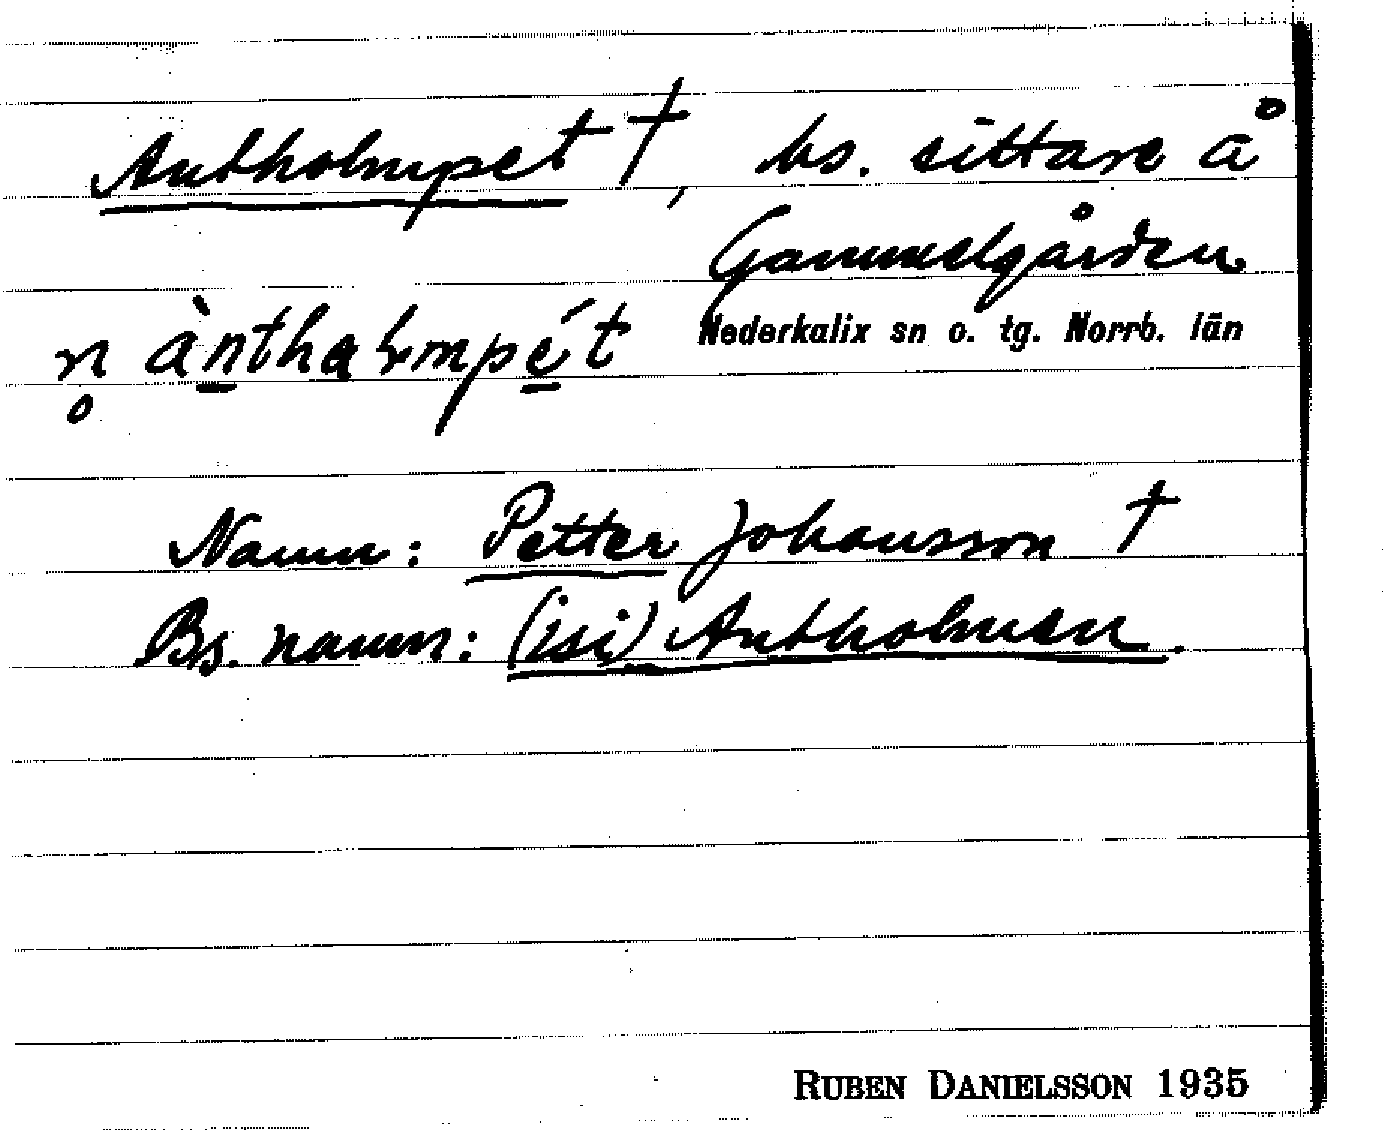 Antholmpet †, bs. sittare å
Gammelgården
Nederkalix sn o. tg. Norrb. län
n̥ àntha
Namn: Petter Johansson †
Bs. namn: (isi) Antholmen.
RUBEN DANIELSSON 1935